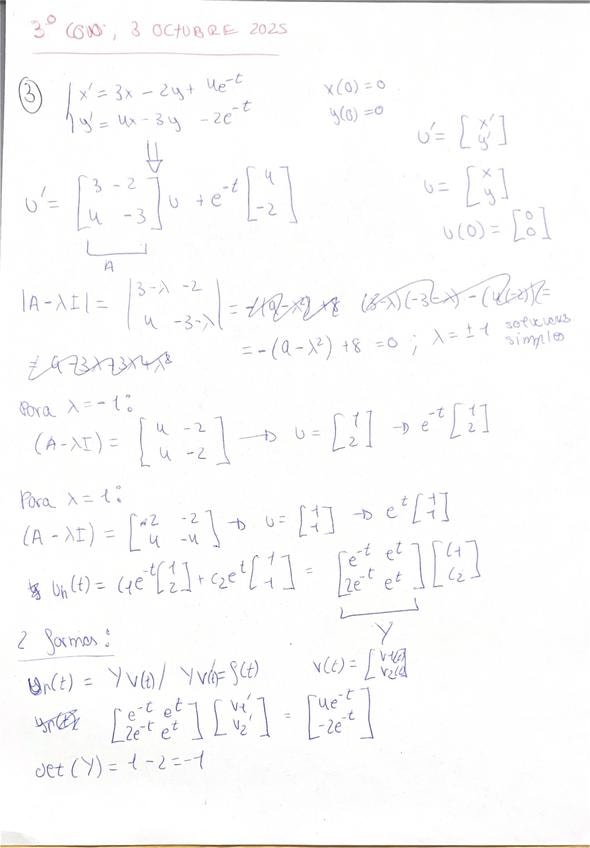 3º CONV., 3 OCTUBRE 2025
③ { x' = 3x - 2y + 4e^-t x(0) = 0
y' = 4x - 3y - 2e^-t y(0) = 0
⇓ U' = [x' y']
U' = [3 -2 4 -3] U + e^-t [4 -2] U = [x y]
A U(0) = [0 0]
|A - λI| = |3-λ -2 4 -3-λ| = (3-λ)(-3-λ) - (4(-2)) =
= -(9 - λ²) + 8 = 0 ; λ = ±1 soluciones simples
Para λ = -1:
(A - λI) = [4 -2 4 -2] → U = [1 2] → e^-t [1 2]
Para λ = 1:
(A - λI) = [2 -2 4 -4] → U = [1 1] → e^t [1 1]
Uh(t) = C1 e^-t [1 2] + C2 e^t [1 1] = [e^-t e^t 2e^-t e^t] [C1 C2]
Y
2 formas:
Un(t) = Y V(t) / Y V' = f(t) V(t) = [V1(t) V2(t)]
[e^-t e^t 2e^-t e^t] [V1' V2'] = [4e^-t -2e^-t]
det(Y) = 1 - 2 = -1